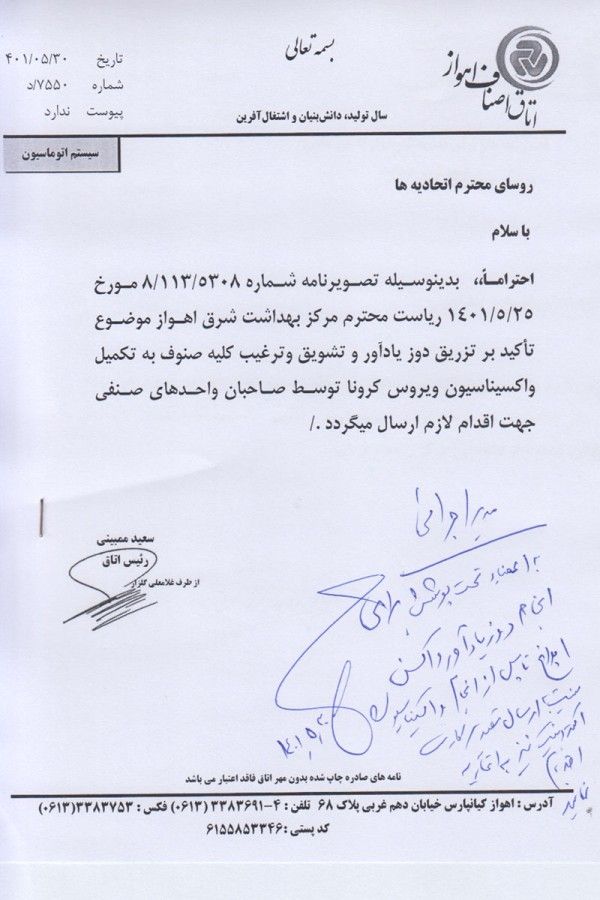 بسمه تعالی
اتاق اصناف اهواز
تاریخ ۴۰۱/۰۵/۳۰
شماره ۷۵۵۰/د
پیوست ندارد
سال تولید، دانش‌بنیان و اشتغال‌آفرین
سیستم اتوماسیون
روسای محترم اتحادیه ها
با سلام
احتراماً،، بدینوسیله تصویرنامه شماره ۸/۱۱۳/۵۳۰۸ مورخ
۱۴۰۱/۵/۲۵ ریاست محترم مرکز بهداشت شرق اهواز موضوع
تأکید بر تزریق دوز یادآور و تشویق وترغیب کلیه صنوف به تکمیل
واکسیناسیون ویروس کرونا توسط صاحبان واحدهای صنفی
جهت اقدام لازم ارسال میگردد ./
سعید ممبینی
رئیس اتاق
از طرف غلامعلی گلزار
مدیر اجرایی
به اعضاء تحت پوشش
انجام دوز یادآور واکسن
پس از انجام واکیناسیون
نسبت به ارسال تصویر کارت
۱۴۰۱/۵/۳۰
نامه های صادره چاپ شده بدون مهر اتاق فاقد اعتبار می باشد
آدرس : اهواز کیانپارس خیابان دهم غربی پلاک ۶۸ تلفن : ۴-۳۳۸۳۶۹۱ (۰۶۱۳) فکس : ۳۳۸۳۷۵۳(۰۶۱۳)
کد پستی : ۶۱۵۵۸۵۳۳۴۶